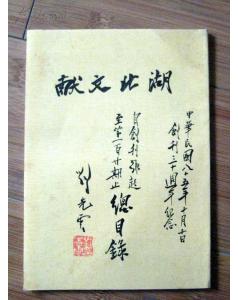 湖北文獻
中華民國八十五年十月十日
創刊三十週年紀念
自創刊號起
至第一百廿期止總目錄
劉先雲